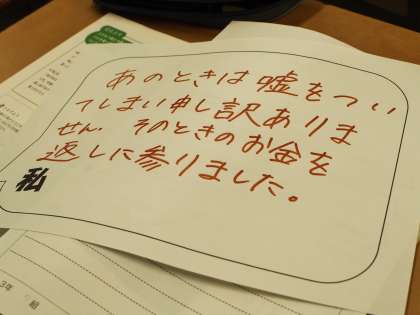 あのときは嘘をつい
てしまい申し訳ありま
せん。そのときのお金を
返しに参りました。
私
3年 組